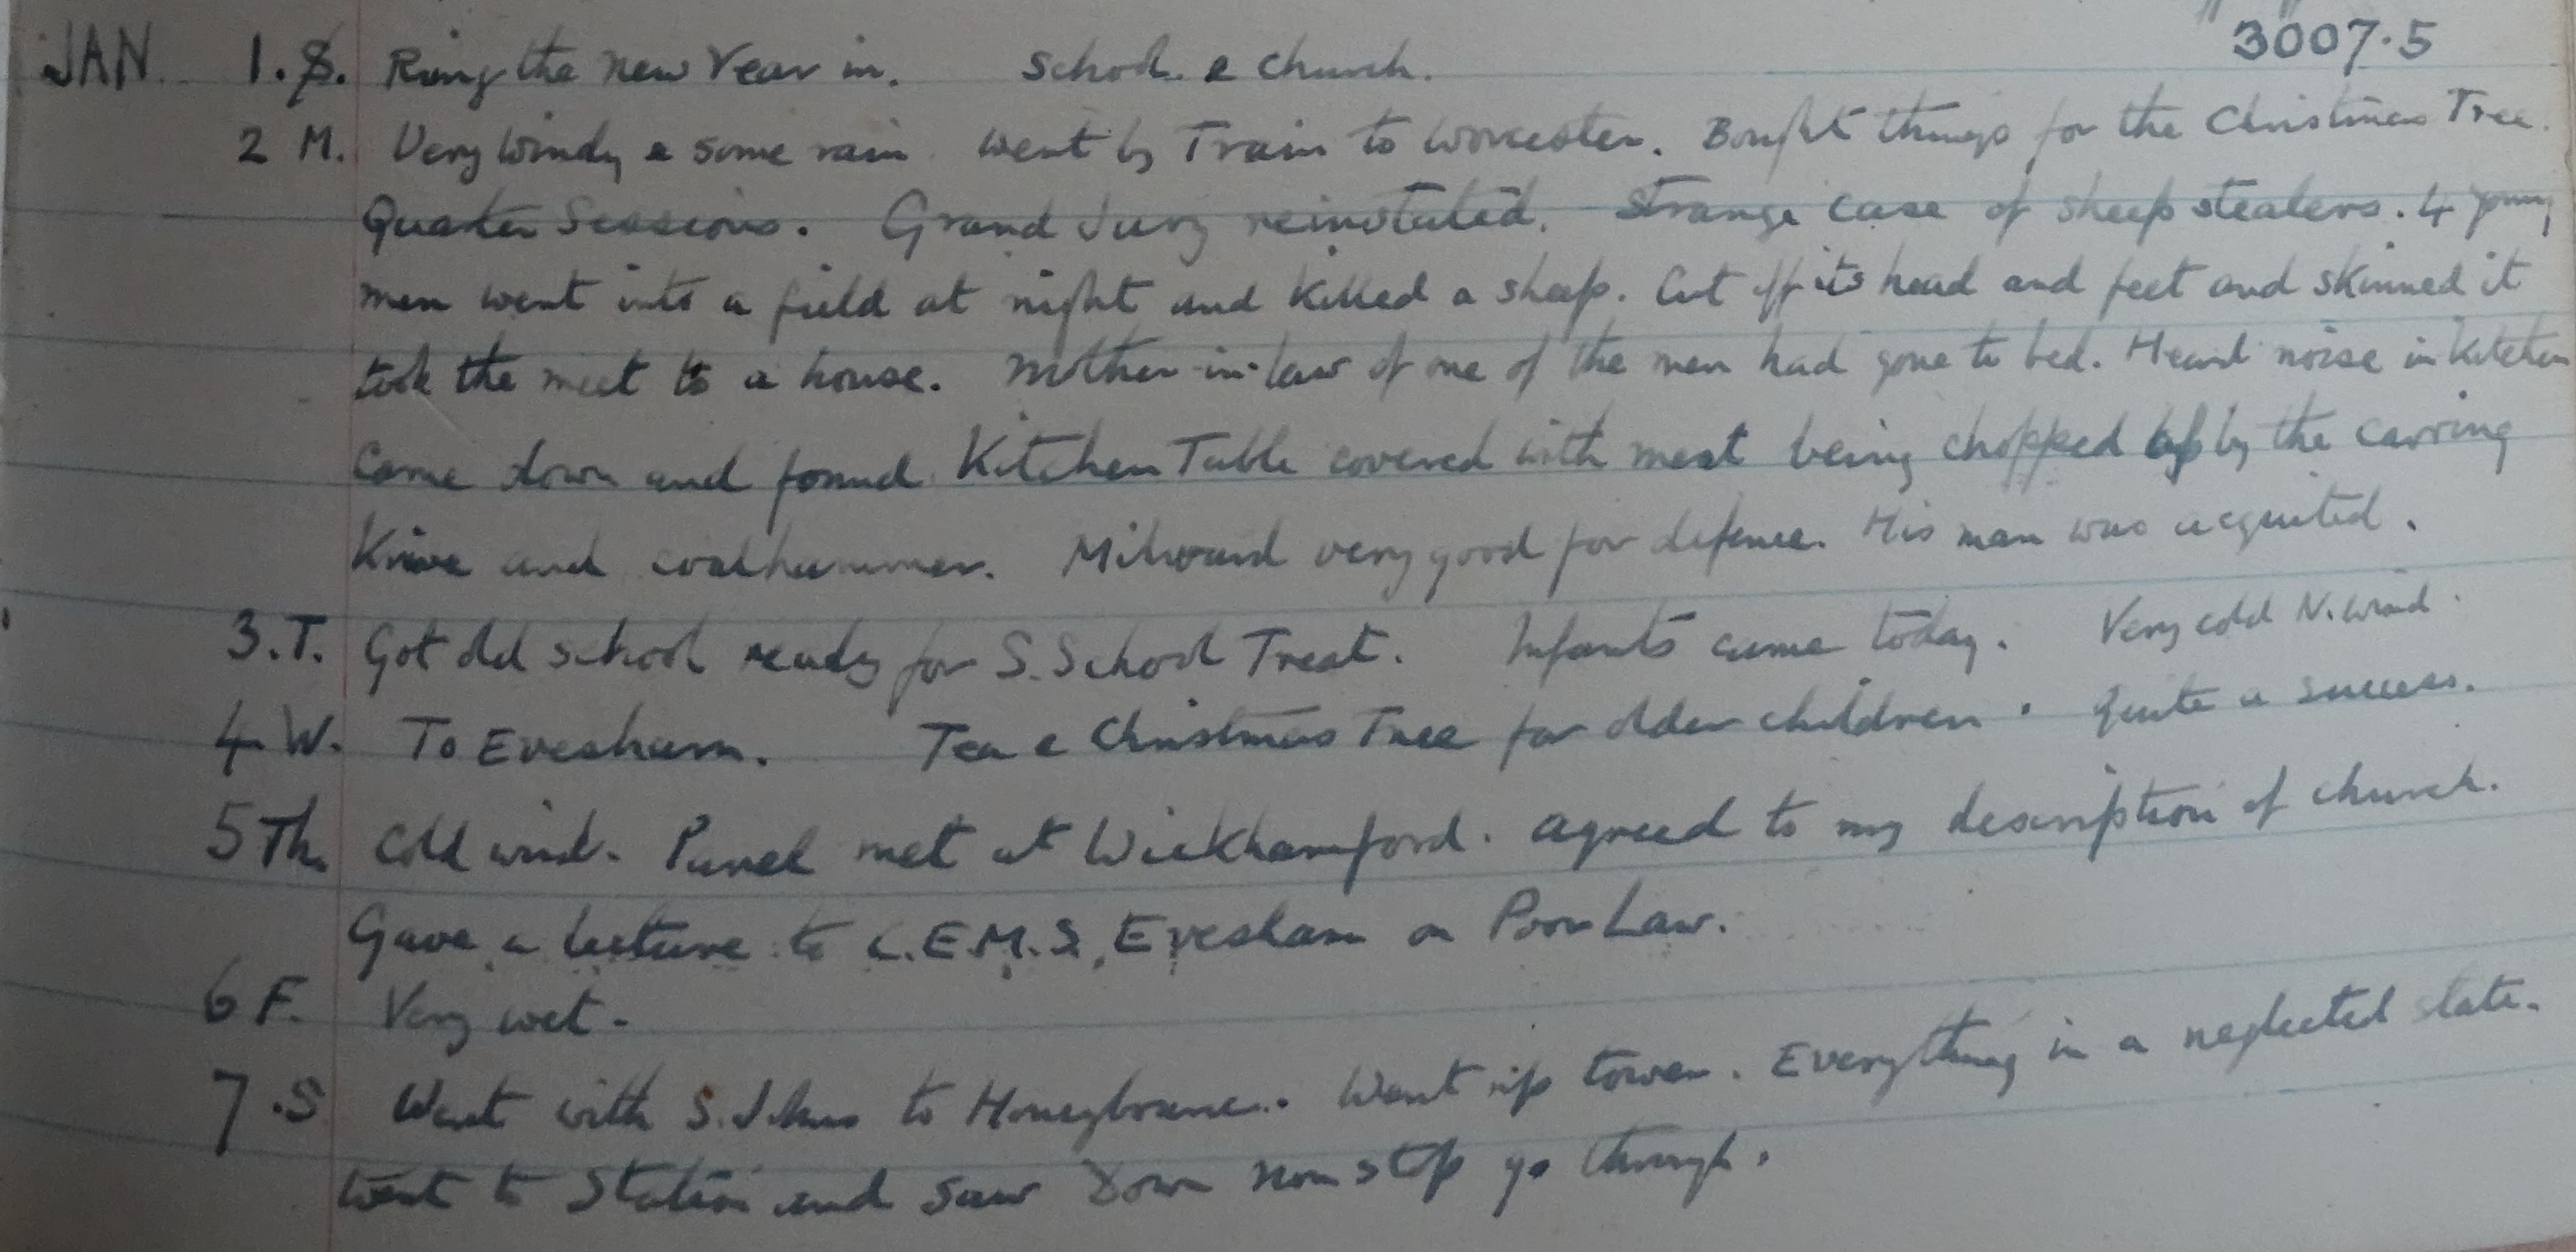 3007.5
JAN. 1. S. Rung the new Year in. School & church.
2 M. Very windy & some rain. Went by Train to Worcester. Bought things for the Christmas Tree.
Quarter Sessions. Grand Jury reinstated. Strange case of sheep stealers. 4 young
men went into a field at night and killed a sheep. Cut off its head and feet and skinned it
took the meet to a house. Mother-in-law of one of the men had gone to bed. Heard noise in kitchen
Came down and found Kitchen Table covered with meat being chopped by the carving
Knive and coalhammer. Milward very good for defence. His man was acquited.
3. T. Got old school ready for S. School Treat. Infants came today. Very cold N. wind.
4. W. To Evesham. Tea & Christmas Tree for older children. Quite a success.
5 Th. Cold wind. Panel met at Wickhamford. Agreed to my description of church.
Gave a lecture to L.E.M.S, Evesham on Poor Law.
6 F. Very wet.
7. S Went with S. Johns to Honeybourne. Went up tower. Everything in a neglected state.
Went to Station and saw Down non stop go through.